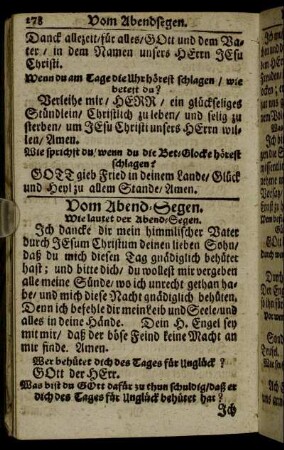 178 Vom Abendsegen.
Danck allezeit/für alles/GOtt und dem Va-
ter/in dem Namen unsers HErrn JEsu
Christi.
Wenn du am Tage die Uhr hörest schlagen/wie
betest du?
Verleihe mir/HERR/ein glückseliges
Stündlein/Christlich zu leben/und selig zu
sterben/um JEsu Christi unsers HErrn wil-
len/Amen.
Wie sprichst du/wenn du die Bet-Glocke hörest
schlagen?
GOTT gieb Fried in deinem Lande/Glück
und Heyl zu allem Stande/Amen.
Vom Abend-Segen.
Wie lautet der Abend-Segen.
Jch dancke dir mein himmlischer Vater
durch JEsum Christum deinen lieben Sohn/
daß du mich diesen Tag gnädiglich behütet
hast; und bitte dich/du wollest mir vergeben
alle meine Sünde/wo ich unrecht gethan ha-
be/und mich diese Nacht gnädiglich behüten.
Denn ich befehle dir mein Leib und Seele/und
alles in deine Hände. Dein H. Engel sey
mit mir/daß der böse Feind keine Macht an
mir finde. Amen.
Wer behütet dich des Tages für Unglück?
GOtt der HErr.
Was bist du GOtt dafür zu thun schuldig/daß er
dich des Tages für Unglück behütet hat?
Jch